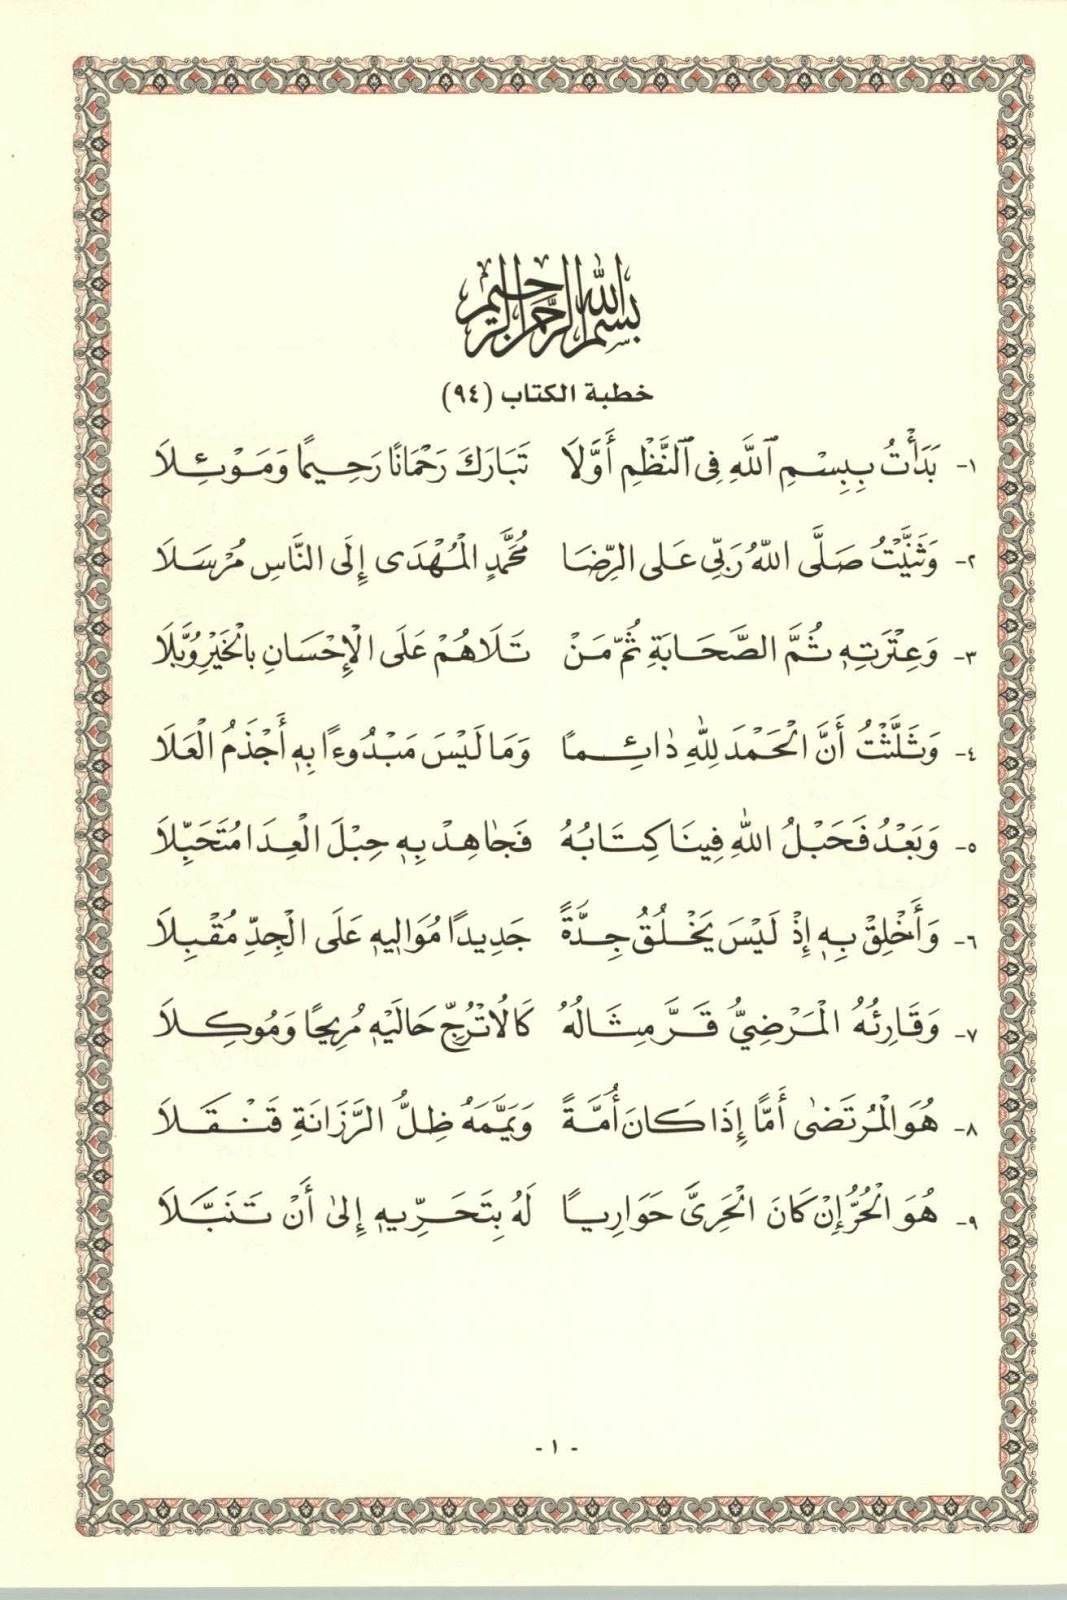 بسم الله الرحمن الرحيم
خطبة الكتاب (٩٤)
١- بَدَأْتُ بِبِسْمِ ٱللَّهِ فِى ٱلنَّظْمِ أَوَّلَا تَبَارَكَ رَحْمَانًا رَحِيمًا وَمَوْئِلَا
٢- وَثَنَّيْتُ صَلَّى اللَّهُ رَبِّى عَلَى الرِّضَا مُحَمَّدٍ الْمُهْدَى إِلَى النَّاسِ مُرْسَلَا
٣- وَعِتْرَتِهِ ثُمَّ الصَّحَابَةِ ثُمَّ مَنْ تَلَاهُمْ عَلَى الْإِحْسَانِ بِالْخَيْرِ وُبَّلَا
٤- وَثَلَّثْتُ أَنَّ الْحَمْدَ لِلَّهِ دَائِمًا وَمَا لَيْسَ مَبْدُوءًا بِهِ أَجْذَمُ الْعَلَا
٥- وَبَعْدُ فَحَبْلُ اللَّهِ فِينَا كِتَابُهُ فَجَاهِدْ بِهِ حِبْلَ الْعِدَا مُتَحَبِّلَا
٦- وَأَخْلِقْ بِهِ إِذْ لَيْسَ يَخْلُقُ جِدَّةً جَدِيدًا مُوَالِيهِ عَلَى الْجِدِّ مُقْبِلَا
٧- وَقَارِئُهُ الْمَرْضِيُّ قَرَّ مِثَالُهُ كَالُاتْرُجِّ حَالَيْهِ مُرِيحًا وَمُوكِلَا
٨- هُوَ الْمُرْتَضَى أَمًّا إِذَا كَانَ أُمَّةً وَيَمَّمَهُ ظِلُّ الرَّزَانَةِ قَنْقَلَا
٩- هُوَ الْحُرُّ إِنْ كَانَ الْحَرِىَّ حَوَارِيًا لَهُ بِتَحَرِّيهِ إِلَى أَنْ تَنَبَّلَا
- ١ -